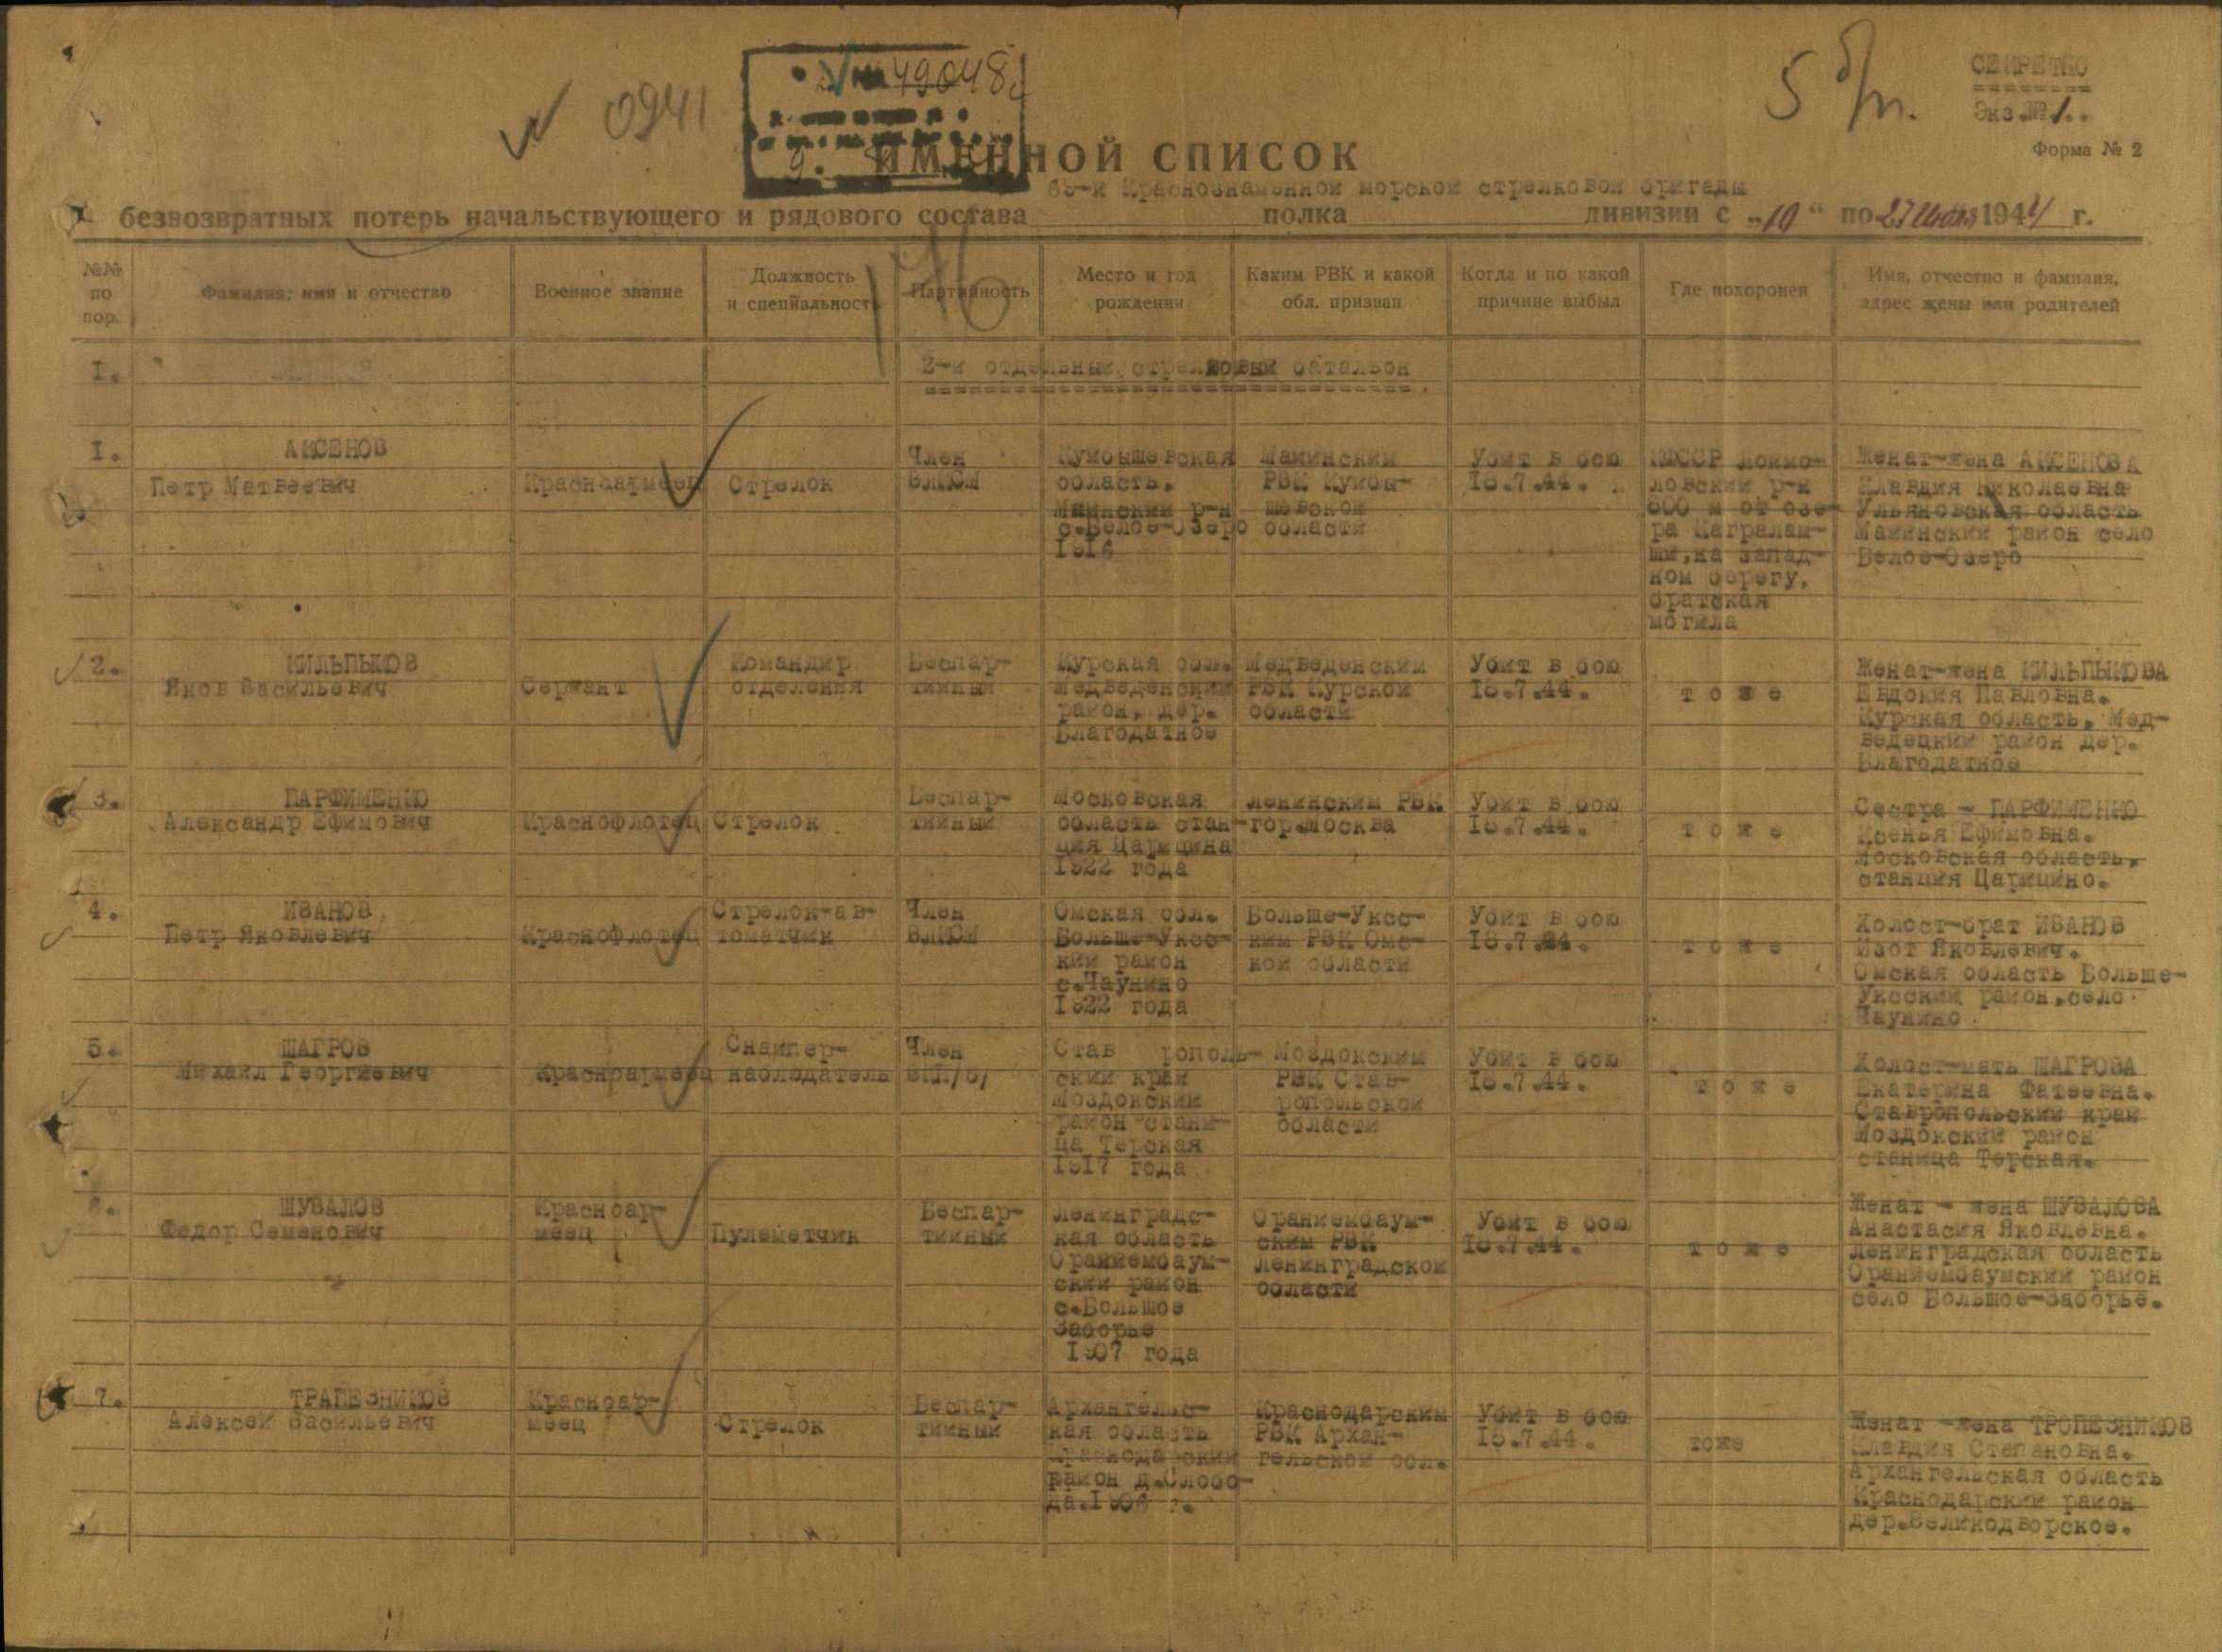 0941
49048с
5 б/т.
СЕКРЕТНО
Экз.№1.
Форма № 2
ИМЕННОЙ СПИСОК
-й Краснознаменной морской стрелковой бригады
безвозвратных потерь начальствующего и рядового состава полка дивизии с „10“ по 27 июля 1944 г.
№№ по пор.
Фамилия, имя и отчество
Военное звание
Должность и специальность
Партийность
Место и год рождения
Каким РВК и какой обл. призван
Когда и по какой причине выбыл
Где похоронен
Имя, отчество и фамилия, адрес жены или родителей
176
I. 2-й отдельный стрелковый батальон
I. АКСЕНОВ
Петр Матвеевич
Красноармеец
Стрелок
Член
ВЛКСМ
Куйбышевская
область.
Майнский р-н
с.Белое-Озеро
Майнским
РВК Куйбы-
шевской
области
Убит в бою
18.7.44.
КФССР Лоймо-
ловский р-н
800 м от озе-
ра Каграпам-
пи,на запад-
ном берегу,
братская
могила
Женат-жена АКСЕНОВА
Клавдия Николаевна
Ульяновская область
Майнский район село
Белое-Озеро
2. КИЛЬПЫКОВ
Яков Васильевич
Сержант
Командир
отделения
Беспар-
тийный
Курская обл.
Медведенский
район, дер.
Благодатное
Медведенским
РВК Курской
области
Убит в бою
18.7.44.
т о ж е
Женат-жена КИЛЬПЫКОВА
Евдокия Павловна.
Курская область, Мед-
ведецкий район дер.
Благодатное
3. ПАРФИМЕНКО
Александр Ефимович
Краснофлотец
Стрелок
Беспар-
тийный
Московская
область стан-
ция Царицина
1922 года
Ленинским РВК
гор.Москва
Убит в бою
18.7.44.
т о ж е
Сестра - ПАРФИМЕНКО
Ксенья Ефимовна.
Московская область,
станция Царицино.
4. ИВАНОВ
Петр Яковлевич
Краснофлотец
Стрелок-ав-
томатчик
Член
ВЛКСМ
Омская обл.
Больше-Укес-
кий район
с.Чаунино
1922 года
Больше-Укес-
ким РВК Омс-
кой области
Убит в бою
18.7.44.
т о ж е
Холост-брат ИВАНОВ
Изот Яковлевич.
Омская область Больше-
Укесский район,село
Чаунино
5. ШАГРОВ
Михаил Георгиевич
Красноармеец
Снайпер-
наблюдатель
Член
ВКП/б/
Став рополь-
ский край
Моздокский
район стани-
ца Терская
1917 года
Моздокским
РВК Став-
ропольской
области
Убит в бою
18.7.44.
т о ж е
Холост-мать ШАГРОВА
Екатерина Фатеевна.
Ставропольский край
Моздокский район
станица Терская.
6. ШУВАЛОВ
Федор Семенович
Красноар-
меец
Пулеметчик
Беспар-
тийный
Ленинградс-
кая область
Ораниембаум-
ский район
с.Большое
Заборье
1907 года
Ораниембаум-
ским РВК
Ленинградской
области
Убит в бою
18.7.44.
т о ж е
Женат - жена ШУВАЛОВА
Анастасия Яковлевна.
Ленинградская область
Ораниембаумский район
село Большое-Заборье.
7. ТРАПЕЗНИКОВ
Алексей Васильевич
Красноар-
меец
Стрелок
Беспар-
тийный
Архангельс-
кая область
Краснодарский
район д.Слобо-
да.1906 г.
Краснодарским
РВК Архан-
гельской обл.
Убит в бою
18.7.44.
тоже
Женат -жена ТРОПЕЗНИКОВ
Клавдия Степановна.
Архангельская область
Краснодарский район
дер.Великодворское.